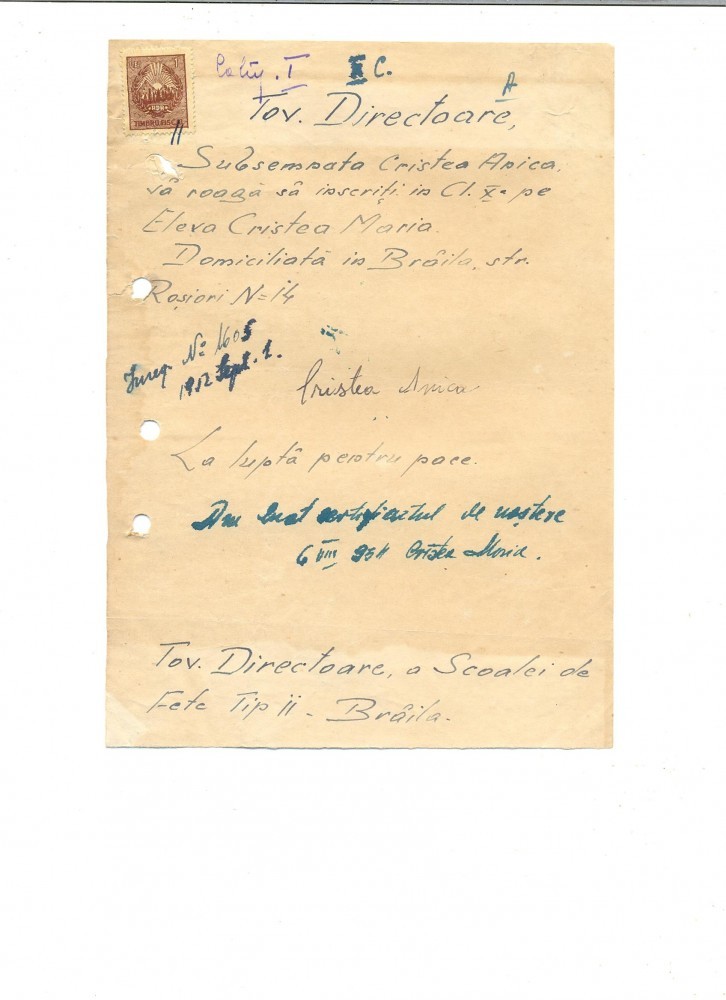 Catg. I X C.
A
Tov. Directoare,
TIMBRU FISCAL
Subsemnata Cristea Anica,
vă roagă să inscriți in Cl. X-a pe
Eleva Cristea Maria.
Domiciliată in Brăila, str.
Roșiori N=14
Inreg. No 1605
1952 Sept. 1.
Cristea Anica
La luptă pentru pace.
Am luat certificatul de naștere
6 VIII 954 Cristea Maria.
Tov. Directoare, a Scoalei de
Fete Tip II - Brăila.